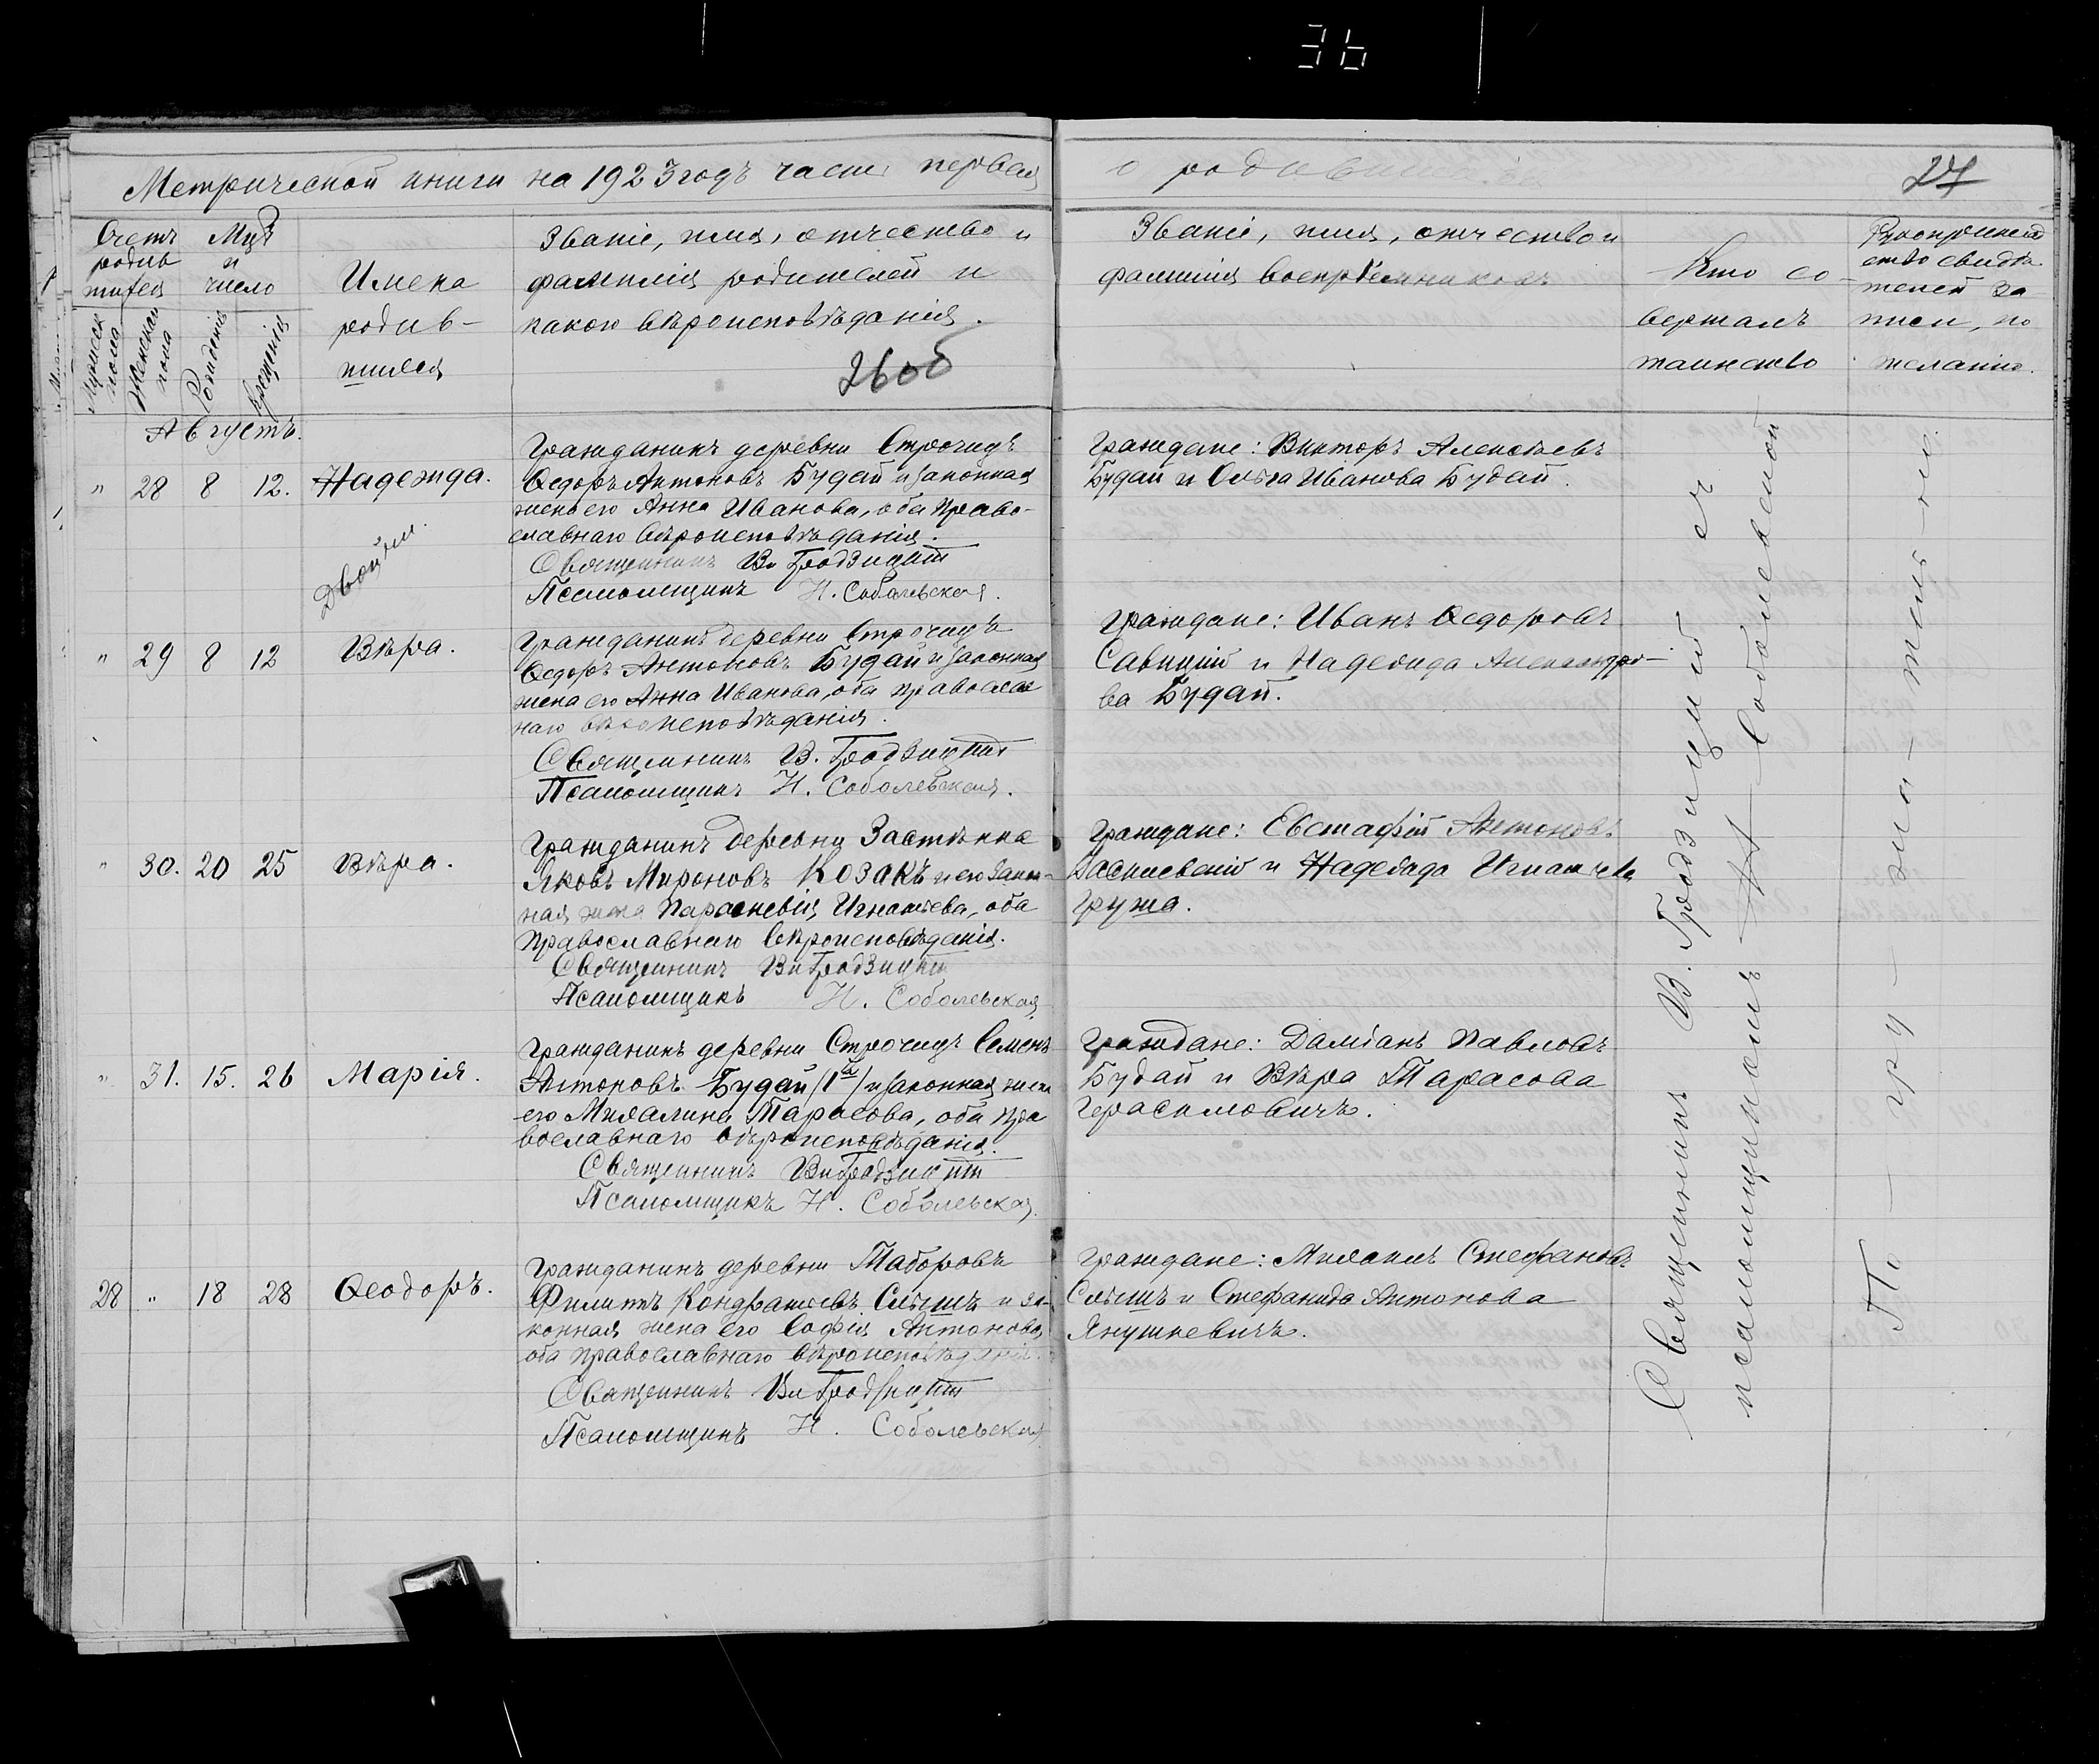 36
Метрической книги на 1923 годъ часть первая
о родившихся
27
Счетъ
родив
шихся
Мужеск
пола
Женскаго
пола
Мцъ
и
число
Рожденія
Крещенія
Имена
родив-
шихся
Званіе, имя, отчество и
фамилія родителей и
какого вѣроисповѣданія.
26об
Званіе, имя, отчество и
фамилія воспріемниковъ
Кто со-
вершалъ
таинство
Рукоприклад
ство свидѣ
телей за
писи, по
желанію.
Августъ.
" 28 8 12. Надежда.
Двойни.
Гражданинъ деревни Строчицъ
Ѳедоръ Антоновъ Будай и законная
жена его Анна Иванова, оба право-
славнаго вѣроисповѣданія.
Священникъ Вл Гродзицкій
Псаломщикъ Н. Соболевская.
Граждане: Викторъ Алексѣевъ
Будай и Ольга Иванова Будай.
" 29 8 12 Вѣра.
Гражданинъ деревни Строчицъ
Ѳедоръ Антоновъ Будай и законная
жена его Анна Иванова, оба православ
наго вѣроисповѣданія.
Священникъ В. Гродзицкій
Псаломщикъ Н. Соболевская.
Граждане: Иванъ Ѳедоровъ
Савицкій и Надежда Александро-
ва Будай.
" 30. 20 25 Вѣра.
Гражданинъ деревни Застѣнка
Яковъ Мироновъ Козакъ и его закон-
ная жена Параскевія Игнатьева, оба
православнаго вѣроисповѣданія.
Священникъ Вл Гродзицкій
Псаломщикъ Н. Соболевская
Граждане: Евстафій Антоновъ
Василевскій и Надежда Игнатьева
Груша.
" 31. 15. 26 Марія.
Гражданинъ деревни Строчицъ Семенъ
Антоновъ Будай /1й/ и законная жена
его Михалина Тарасова, оба пра
вославнаго вѣроисповѣданія.
Священникъ Вл Гродзицкій
Псаломщикъ Н. Соболевская.
Граждане: Даміанъ Павловъ
Будай и Вѣра Тарасова
Герасимовичъ.
28 " 18 28 Ѳеодоръ.
Гражданинъ деревни Таборовъ
Филиппъ Кондратьевъ Слѣшъ и за-
конная жена его Софія Антонова,
оба православнаго вѣроисповѣданія.
Священникъ Вл Гродзицкій
Псаломщикъ Н. Соболевская
Граждане: Михаилъ Стефановъ
Слѣшъ и Стефанида Антонова
Янушкевичъ.
Священникъ В. Гродзицкій съ
псаломщикомъ Н Соболевской